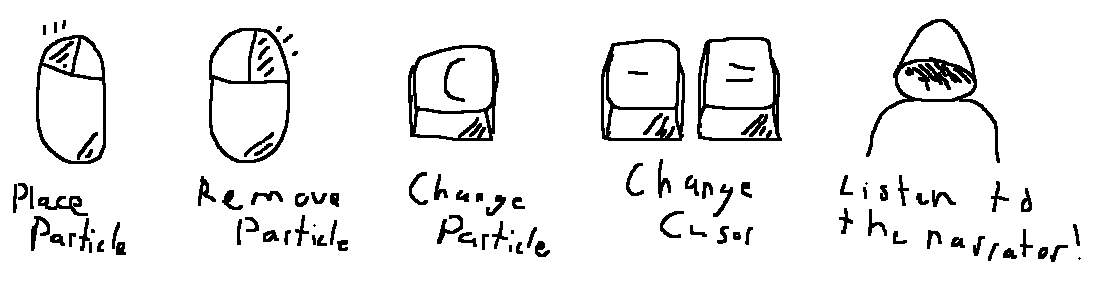 C
-
=
Place
Particle
Remove
Particle
Change
Particle
Change
Cusor
Listen to
the narrator!